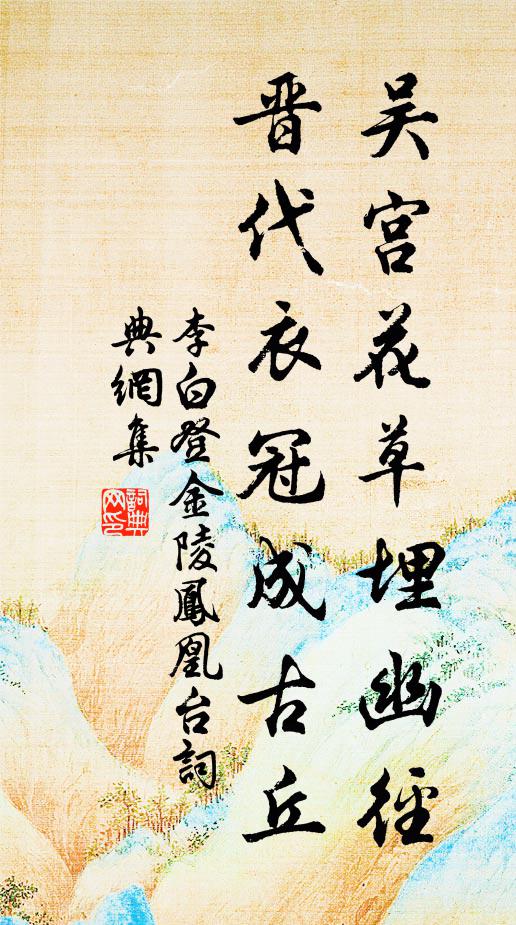 吴宫花草埋幽径
晋代衣冠成古丘
李白登金陵鳳凰台詞
典網集
詞典
网印